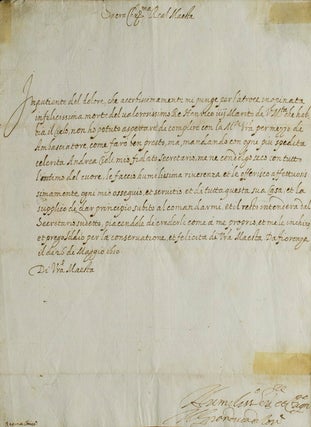 Sacra Real Maestà
Impatiente del dolore, che acerbissimamente mi punge per l'atroce inopinata
infelicissima morte del valorosissimo Re Henrico iiij Marito di V. M.tà che hab-
bia il cielo, non ho potuto aspettare di complire con la M.tà Vra per mezzo di
Ambasciatore come farò ben presto, ma mandando con ogni più spedita
celerità Andrea Cioli mio fidato Secretario, me ne condoglio seco con tutto
l'intimo del cuore, le faccio humilissima riverenza et le offerisco affettuosis-
simamente ogni mio ossequio, et servitio et di tutta questa sua Casa, et la
supplico di dar principio subito al comandarmi, et il resto intenderà dal
Secretario sudetto, piacendole di crederli come a me proprio, et me le inchino
et prego Iddio per la conservatione, et felicità di Vra Maestà Da fiorenza
di Maggio 1610
Di Vra Maestà